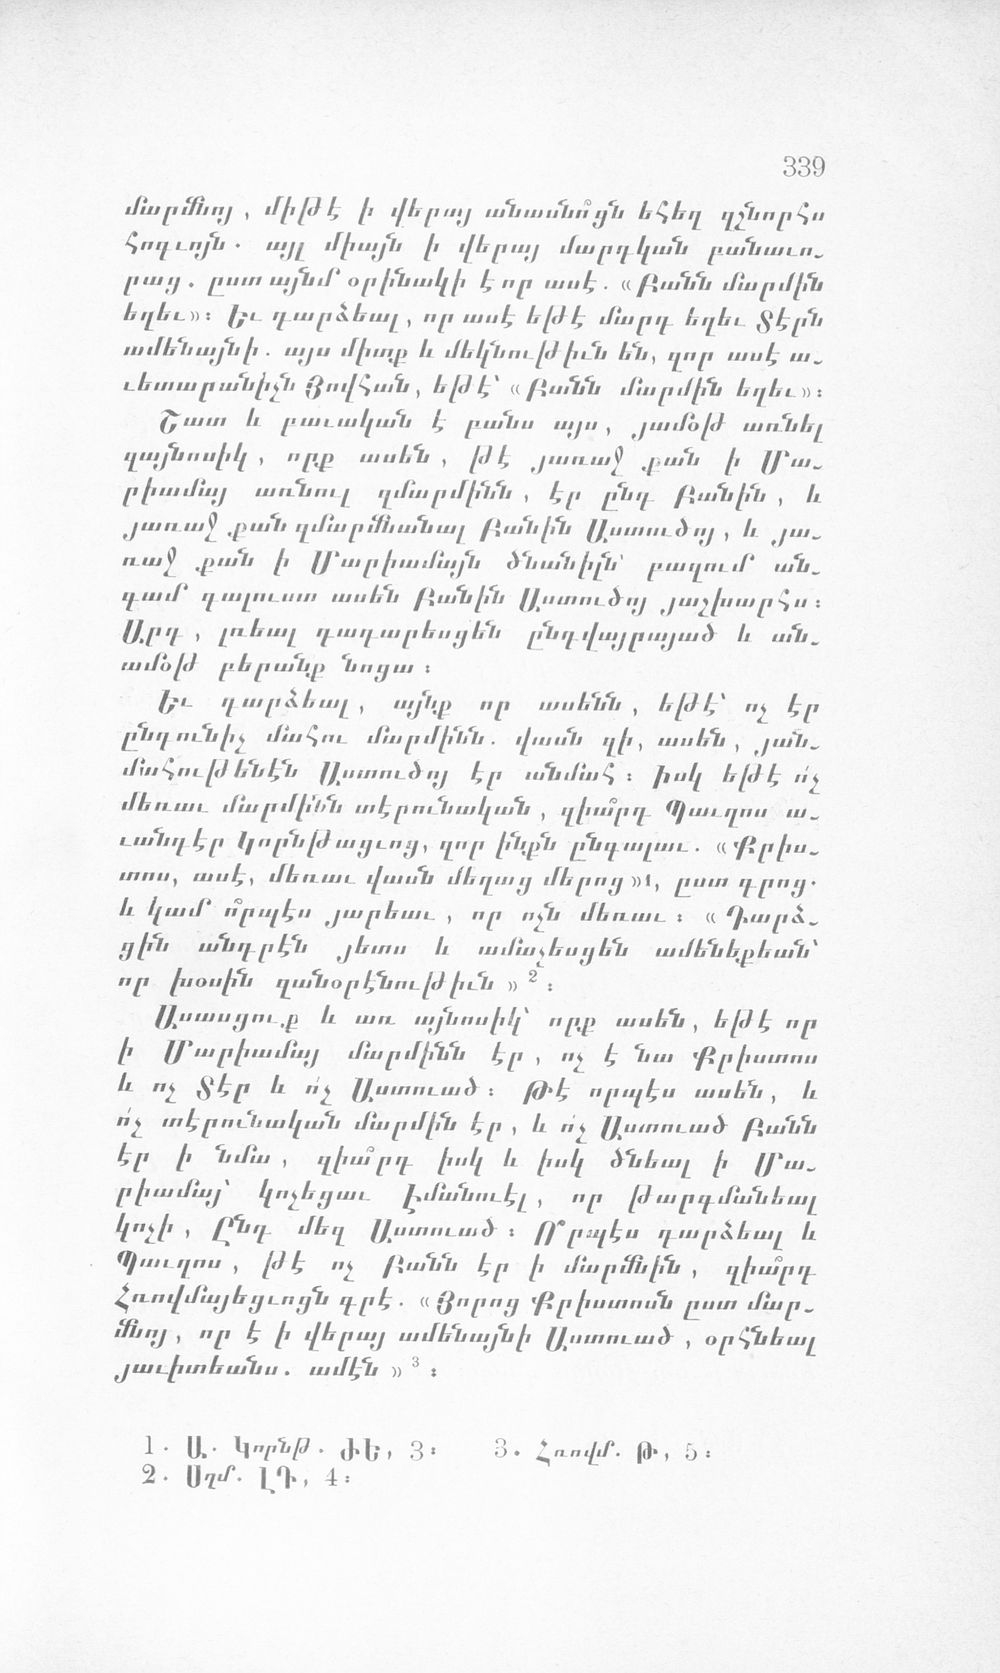 339
մարմնոյ, միթէ ի վերայ անասնո՞ցն եհեղ զշնորհս
Հոգւոյն. այլ միայն ի վերայ մարդկան բանաւո-
րաց. ըստ այնմ օրինակի է որ ասէ. «Բանն մարմին
եղեւ»։ Եւ դարձեալ, որ ասէ եթէ մարդ եղեւ Տէրն
ամենայնի. այս միտք և մեկնութիւն են, զոր ասէ ա-
ւետարանիչն Յովհան, եթէ՝ «Բանն մարմին եղեւ»։
Շատ և բաւական է բանս այս, յամօթ առնել
զայնոսիկ, որք ասեն, թէ յառաջ քան ի Մա-
րիամայ առնուլ զմարմինն, էր ընդ Բանին, և
յառաջ քան զմարմնանալ Բանին Աստուծոյ, և յա-
ռաջ քան ի Մարիամայն ծնանիլն՝ բազում ան-
գամ գալուստ ասեն Բանին Աստուծոյ յաշխարհս։
Արդ, լռեալ դադարեսցեն ընդվայրայած և ան-
ամօթ բերանք նոցա։
Եւ դարձեալ, այնք որ ասենն, եթէ՝ ոչ էր
ընդունիչ մահու մարմինն. վասն զի, ասեն, յան-
մահութենէն Աստուծոյ էր անմահ։ Իսկ եթէ ո՛չ
մեռաւ մարմինն տէրունական, զիա՞րդ Պաւղոս ա-
ւանդէր Կորնթացւոց, զոր ինքն ընդալաւ. «Քրիս-
տոս, ասէ, մեռաւ վասն մեղաց մերոց»1, ըստ գրոց.
և կամ ո՞րպէս յարեաւ, որ ոչն մեռաւ։ «Դարձ-
ցին անդրէն յետս և ամաչեսցեն ամենեքեան՝
որ խօսին զանօրէնութիւն»2։
Ասասցուք և առ այնոսիկ՝ որք ասեն, եթէ որ
ի Մարիամայ մարմինն էր, ոչ է նա Քրիստոս
և ոչ Տէր և ո՛չ Աստուած։ Թէ որպէս ասեն, և
ո՛չ տէրունական մարմին էր, և ո՛չ Աստուած Բանն
էր ի նմա, զիա՞րդ իսկ և իսկ ծնեալ ի Մա-
րիամայ՝ կոչեցաւ Էմանուէլ, որ թարգմանեալ
կոչի, Ընդ մեզ Աստուած։ Ո՞րպէս դարձեալ և
Պաւղոս, թէ ոչ Բանն էր ի մարմնին, զիա՞րդ
Հռովմայեցւոցն գրէ. «Յորոց Քրիստոսն ըստ մար-
մնոյ, որ է ի վերայ ամենայնի Աստուած, օրհնեալ
յաւիտեանս. ամէն»3։
1. Ա. Կորնթ. ԺԵ, 3։ 3. Հռովմ. Թ, 5։
2. Սղմ. ԼԴ, 4։